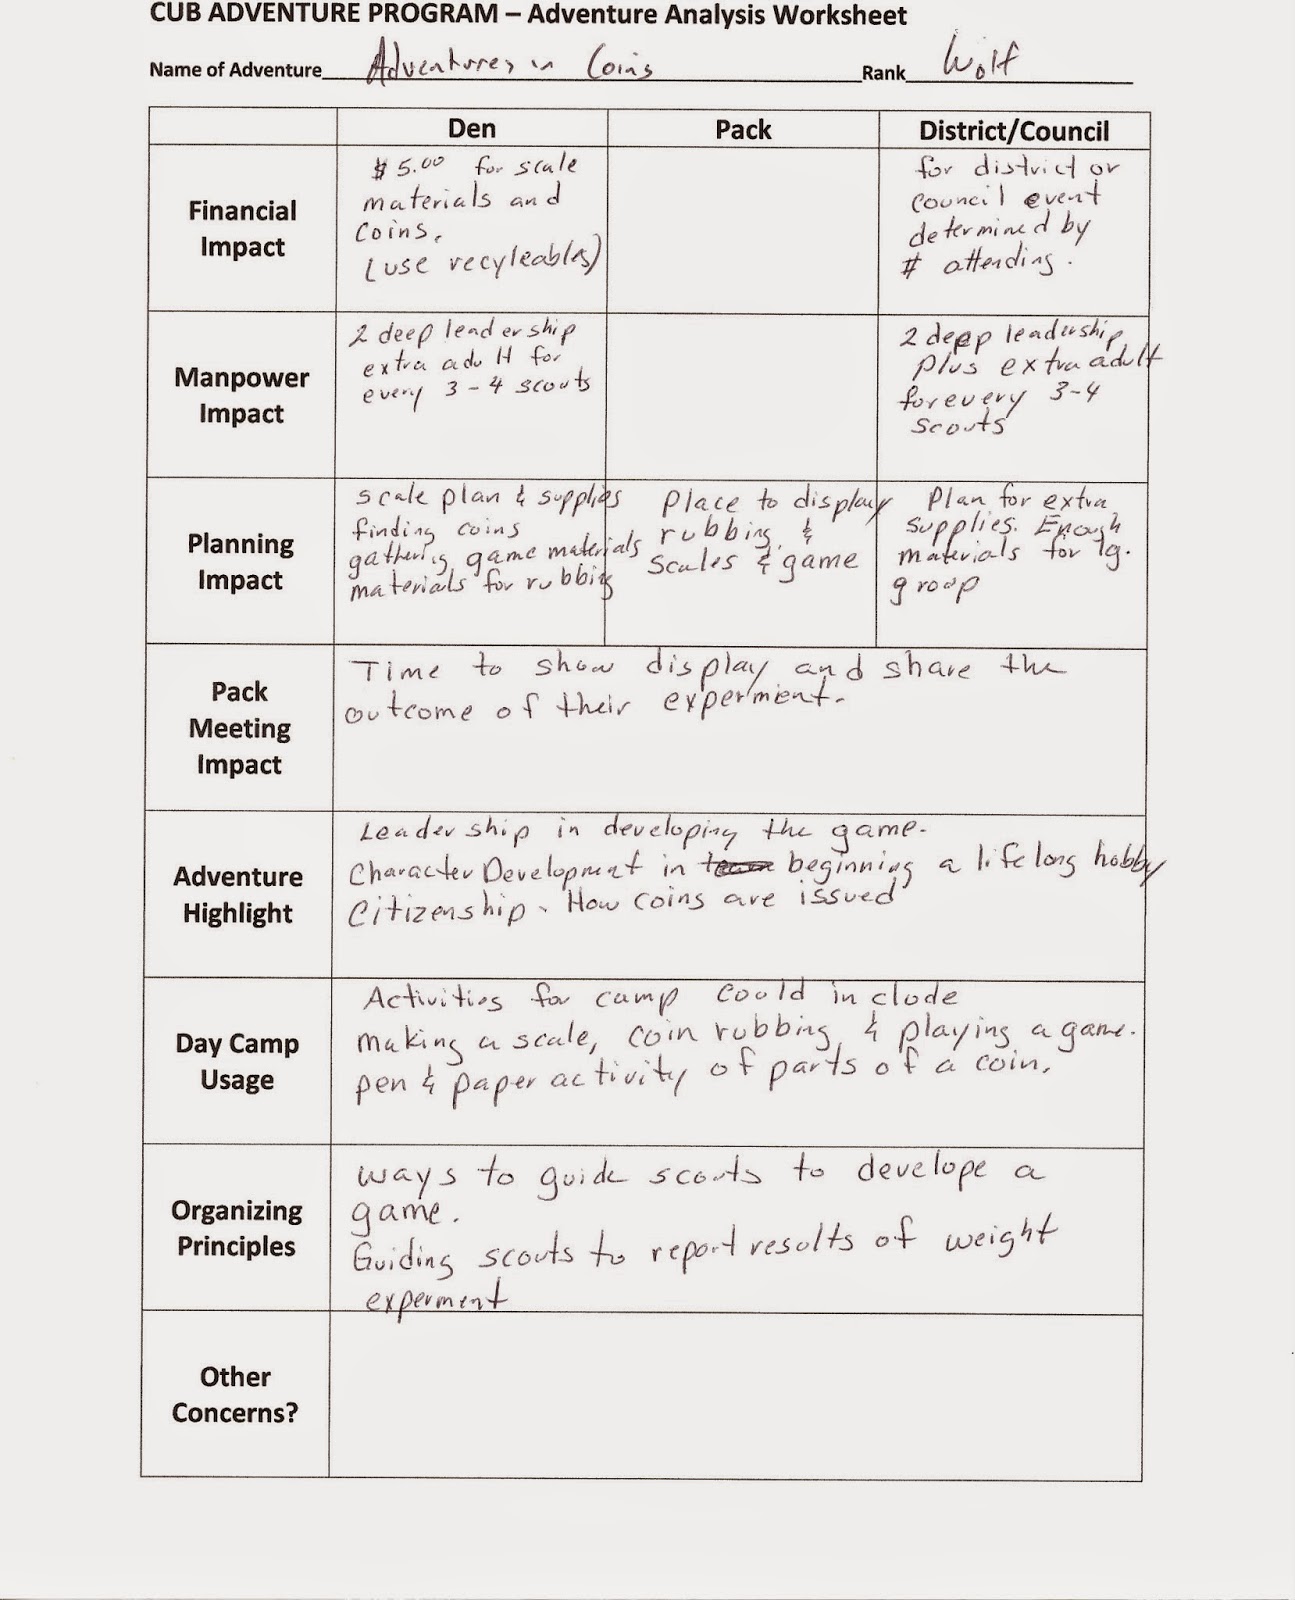 CUB ADVENTURE PROGRAM – Adventure Analysis Worksheet
Name of Adventure Adventures in Coins Rank Wolf
Den Pack District/Council
Financial
Impact
$5.00 for scale
materials and
coins.
(use recyleables)
for district or
council event
determined by
# attending.
Manpower
Impact
2 deep leadership
extra adult for
every 3-4 scouts
2 deep leadership
plus extra adult
for every 3-4
scouts
Planning
Impact
scale plan & supplies
finding coins
gathering game materials
materials for rubbing
Place to display
rubbing, &
scales & game
Plan for extra
supplies. Enough
materials for lg.
group
Pack
Meeting
Impact
Time to show display and share the
outcome of their experment.
Adventure
Highlight
Leadership in developing the game.
Character Development in beginning a lifelong hobby
Citizenship - How coins are issued
Day Camp
Usage
Activities for camp could include
making a scale, coin rubbing, & playing a game.
pen & paper activity of parts of a coin.
Organizing
Principles
ways to guide scouts to develope a
game.
Guiding scouts to report results of weight
experment
Other
Concerns?